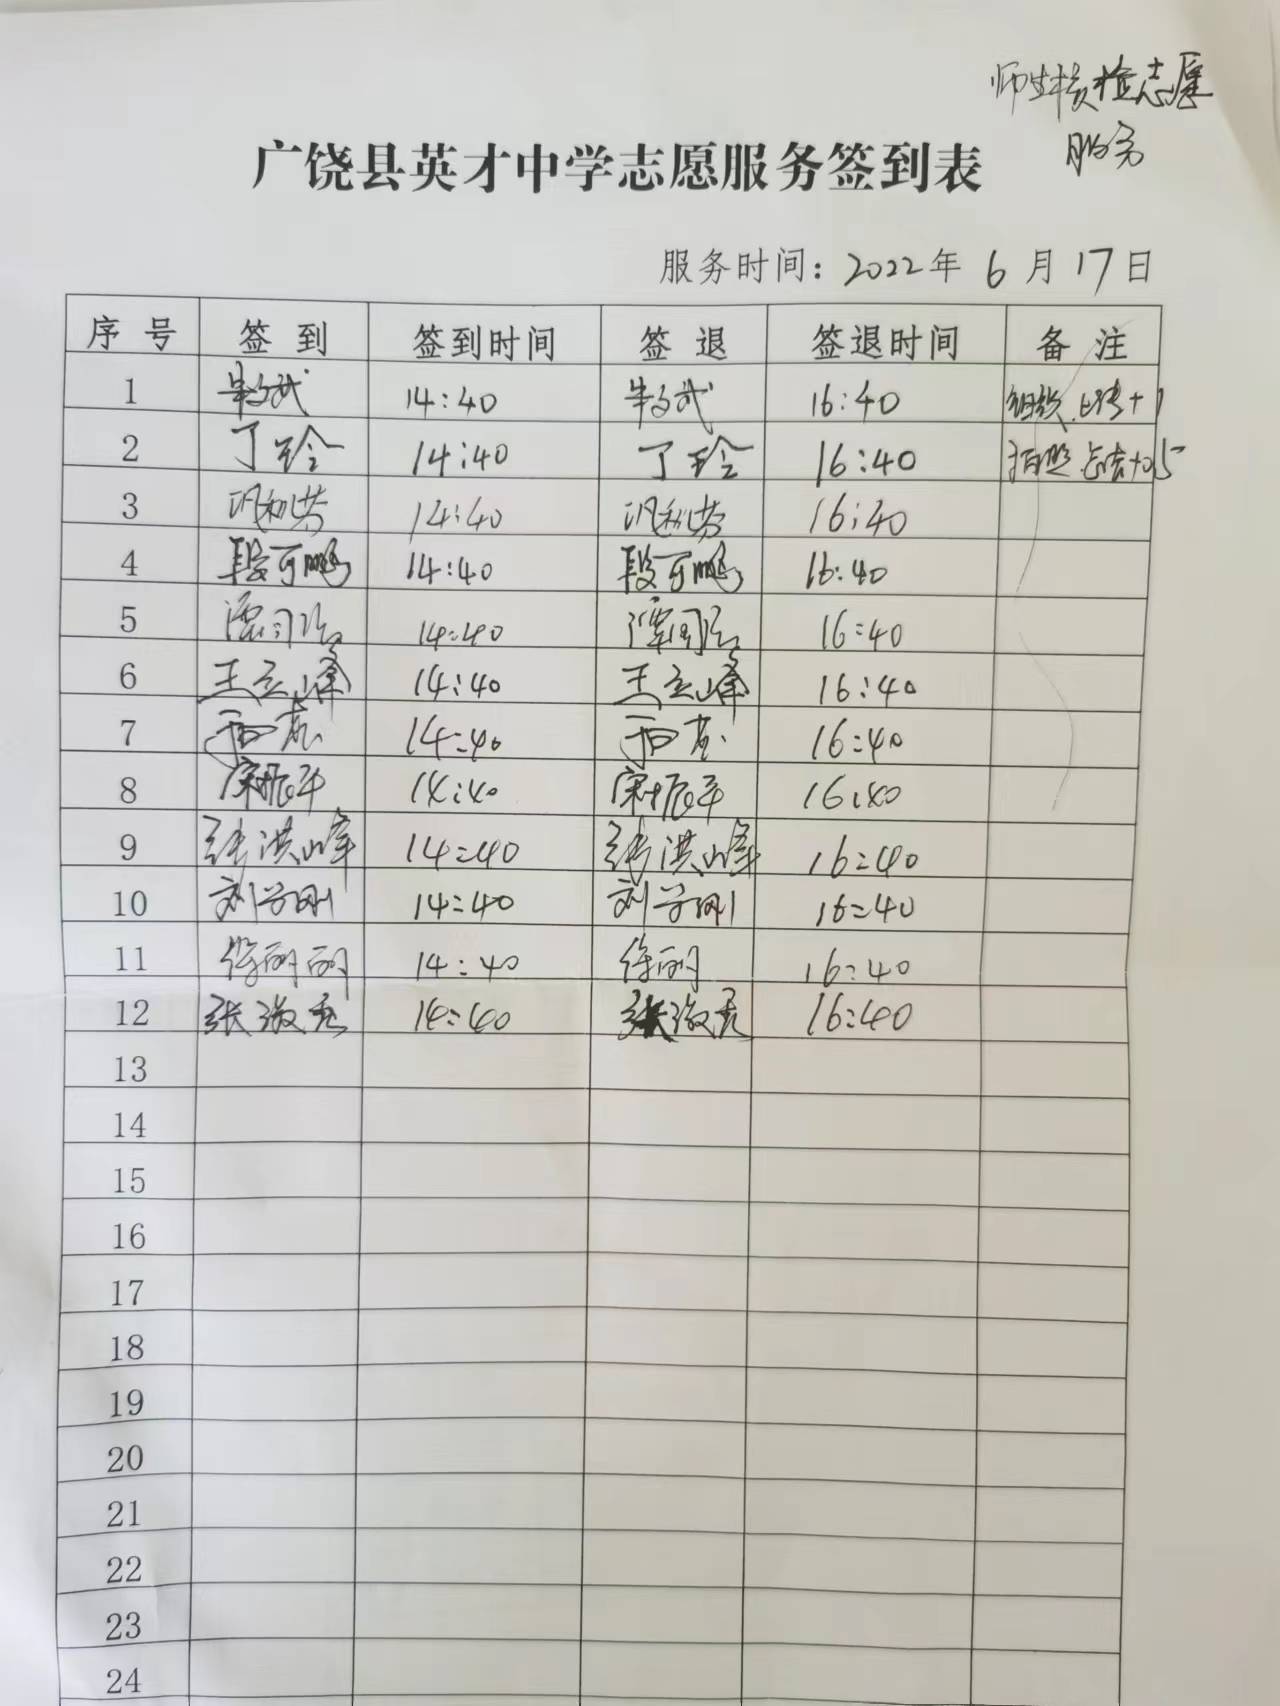 师生核检志愿
服务
广饶县英才中学志愿服务签到表
服务时间：2022年 6 月 17日
序 号 签 到 签到时间 签 退 签退时间 备 注
1 14:40 16:40
2 丁玲 14:40 丁玲 16:40
3 14:40 16:40
4 段可鹏 14:40 段可鹏 16:40
5 14:40 16:40
6 王立峰 14:40 王立峰 16:40
7 14:40 16:40
8 宋振平 14:40 宋振平 16:40
9 张洪峰 14:40 张洪峰 16:40
10 刘学刚 14:40 刘学刚 16:40
11 徐丽丽 14:40 徐丽 16:40
12 14:40 16:40
13
14
15
16
17
18
19
20
21
22
23
24